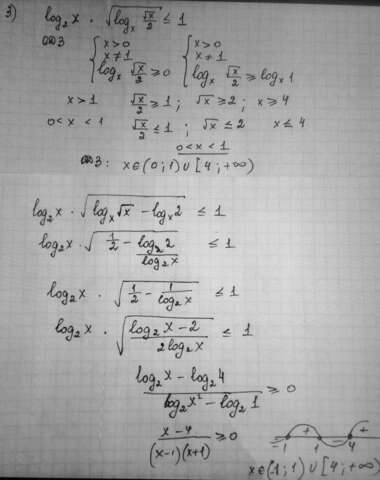 3) log₂x · √(logₓ √x/2) ≤ 1
ОДЗ { x>0 { x>0
x≠1 x≠1
logₓ √x/2 ≥ 0 logₓ √x/2 ≥ logₓ1
x>1 √x/2 ≥ 1; √x ≥ 2; x ≥ 4
0<x<1 √x/2 ≤ 1; √x ≤ 2 x ≤ 4
0<x<1
ОДЗ: x∈(0;1)∪[4;+∞)
log₂x · √(logₓ√x − logₓ2) ≤ 1
log₂x · √(1/2 − log₂2/log₂x) ≤ 1
log₂x · √(1/2 − 1/log₂x) ≤ 1
log₂x · √((log₂x−2)/(2log₂x)) ≤ 1
(log₂x − log₂4)/(log₂x² − log₂1) ≥ 0
(x−4)/((x−1)(x+1)) ≥ 0 − + − +
−1 1 4
x∈(−1;1)∪[4;+∞)